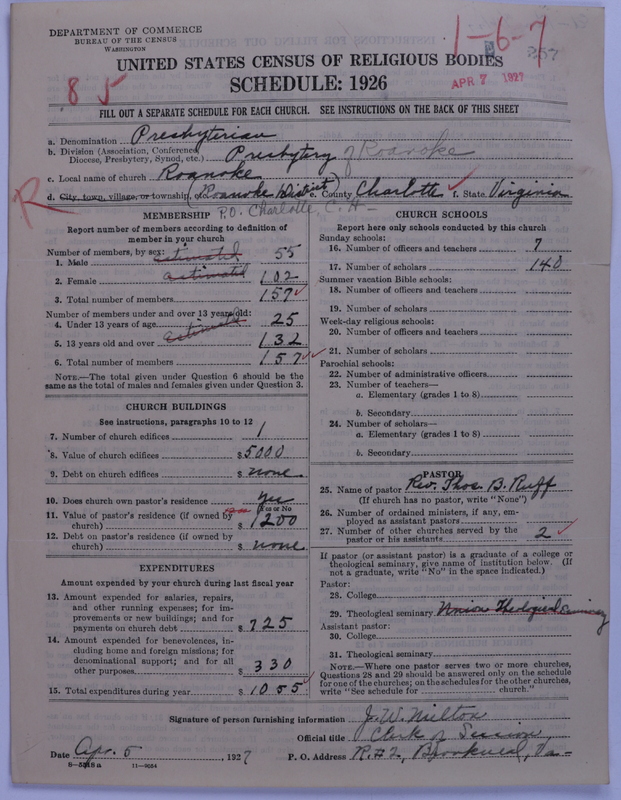 DEPARTMENT OF COMMERCE
BUREAU OF THE CENSUS
WASHINGTON
1-6-7
357
APR 7 1927
UNITED STATES CENSUS OF RELIGIOUS BODIES
SCHEDULE: 1926
8 5
FILL OUT A SEPARATE SCHEDULE FOR EACH CHURCH. SEE INSTRUCTIONS ON THE BACK OF THIS SHEET
a. Denomination Presbyterian
b. Division (Association, Conference, Diocese, Presbytery, Synod, etc.) Presbytery of Roanoke
c. Local name of church Roanoke
R
d. City, town, village, or township, (Roanoke District) e. County Charlotte f. State Virginia
P.O. Charlotte, C. H.
MEMBERSHIP
Report number of members according to definition of
member in your church
Number of members, by sex:
1. Male estimated 55
2. Female estimated 102
3. Total number of members 157
Number of members under and over 13 years old:
4. Under 13 years of age 25
5. 13 years old and over estimated 132
6. Total number of members 157
NOTE.—The total given under Question 6 should be the
same as the total of males and females given under Question 3.
CHURCH BUILDINGS
See instructions, paragraphs 10 to 12
7. Number of church edifices 1
8. Value of church edifices $5000
9. Debt on church edifices $ none
10. Does church own pastor's residence Yes
(Yes or No)
11. Value of pastor's residence (if owned by
church) $ 1200
12. Debt on pastor's residence (if owned by
church) $ none
EXPENDITURES
Amount expended by your church during last fiscal year
13. Amount expended for salaries, repairs,
and other running expenses; for im-
provements or new buildings; and for
payments on church debt $ 725
14. Amount expended for benevolences, in-
cluding home and foreign missions; for
denominational support; and for all
other purposes $ 330
15. Total expenditures during year $ 1055
CHURCH SCHOOLS
Report here only schools conducted by this church
Sunday schools:
16. Number of officers and teachers 7
17. Number of scholars 140
Summer vacation Bible schools:
18. Number of officers and teachers
19. Number of scholars
Week-day religious schools:
20. Number of officers and teachers
21. Number of scholars
Parochial schools:
22. Number of administrative officers
23. Number of teachers—
a. Elementary (grades 1 to 8)
b. Secondary
24. Number of scholars—
a. Elementary (grades 1 to 8)
b. Secondary
PASTOR
25. Name of pastor Rev. Thos. B. Ruff
(If church has no pastor, write "None")
26. Number of ordained ministers, if any, em-
ployed as assistant pastors
27. Number of other churches served by the
pastor or his assistants 2
If pastor (or assistant pastor) is a graduate of a college or
theological seminary, give name of institution below. (If
not a graduate, write "No" in the space indicated.)
Pastor:
28. College
29. Theological seminary Union Theological Seminary
Assistant pastor:
30. College
31. Theological seminary
NOTE.—Where one pastor serves two or more churches,
Questions 28 and 29 should be answered only on the schedule
for one of the churches; on the schedules for the other churches,
write "See schedule for church."
Signature of person furnishing information J. W. Milton
Official title Clerk of Session,
Date Apr. 5, 1927 P. O. Address R.#2, Brookneal, Va.
8—5318a 11—9054